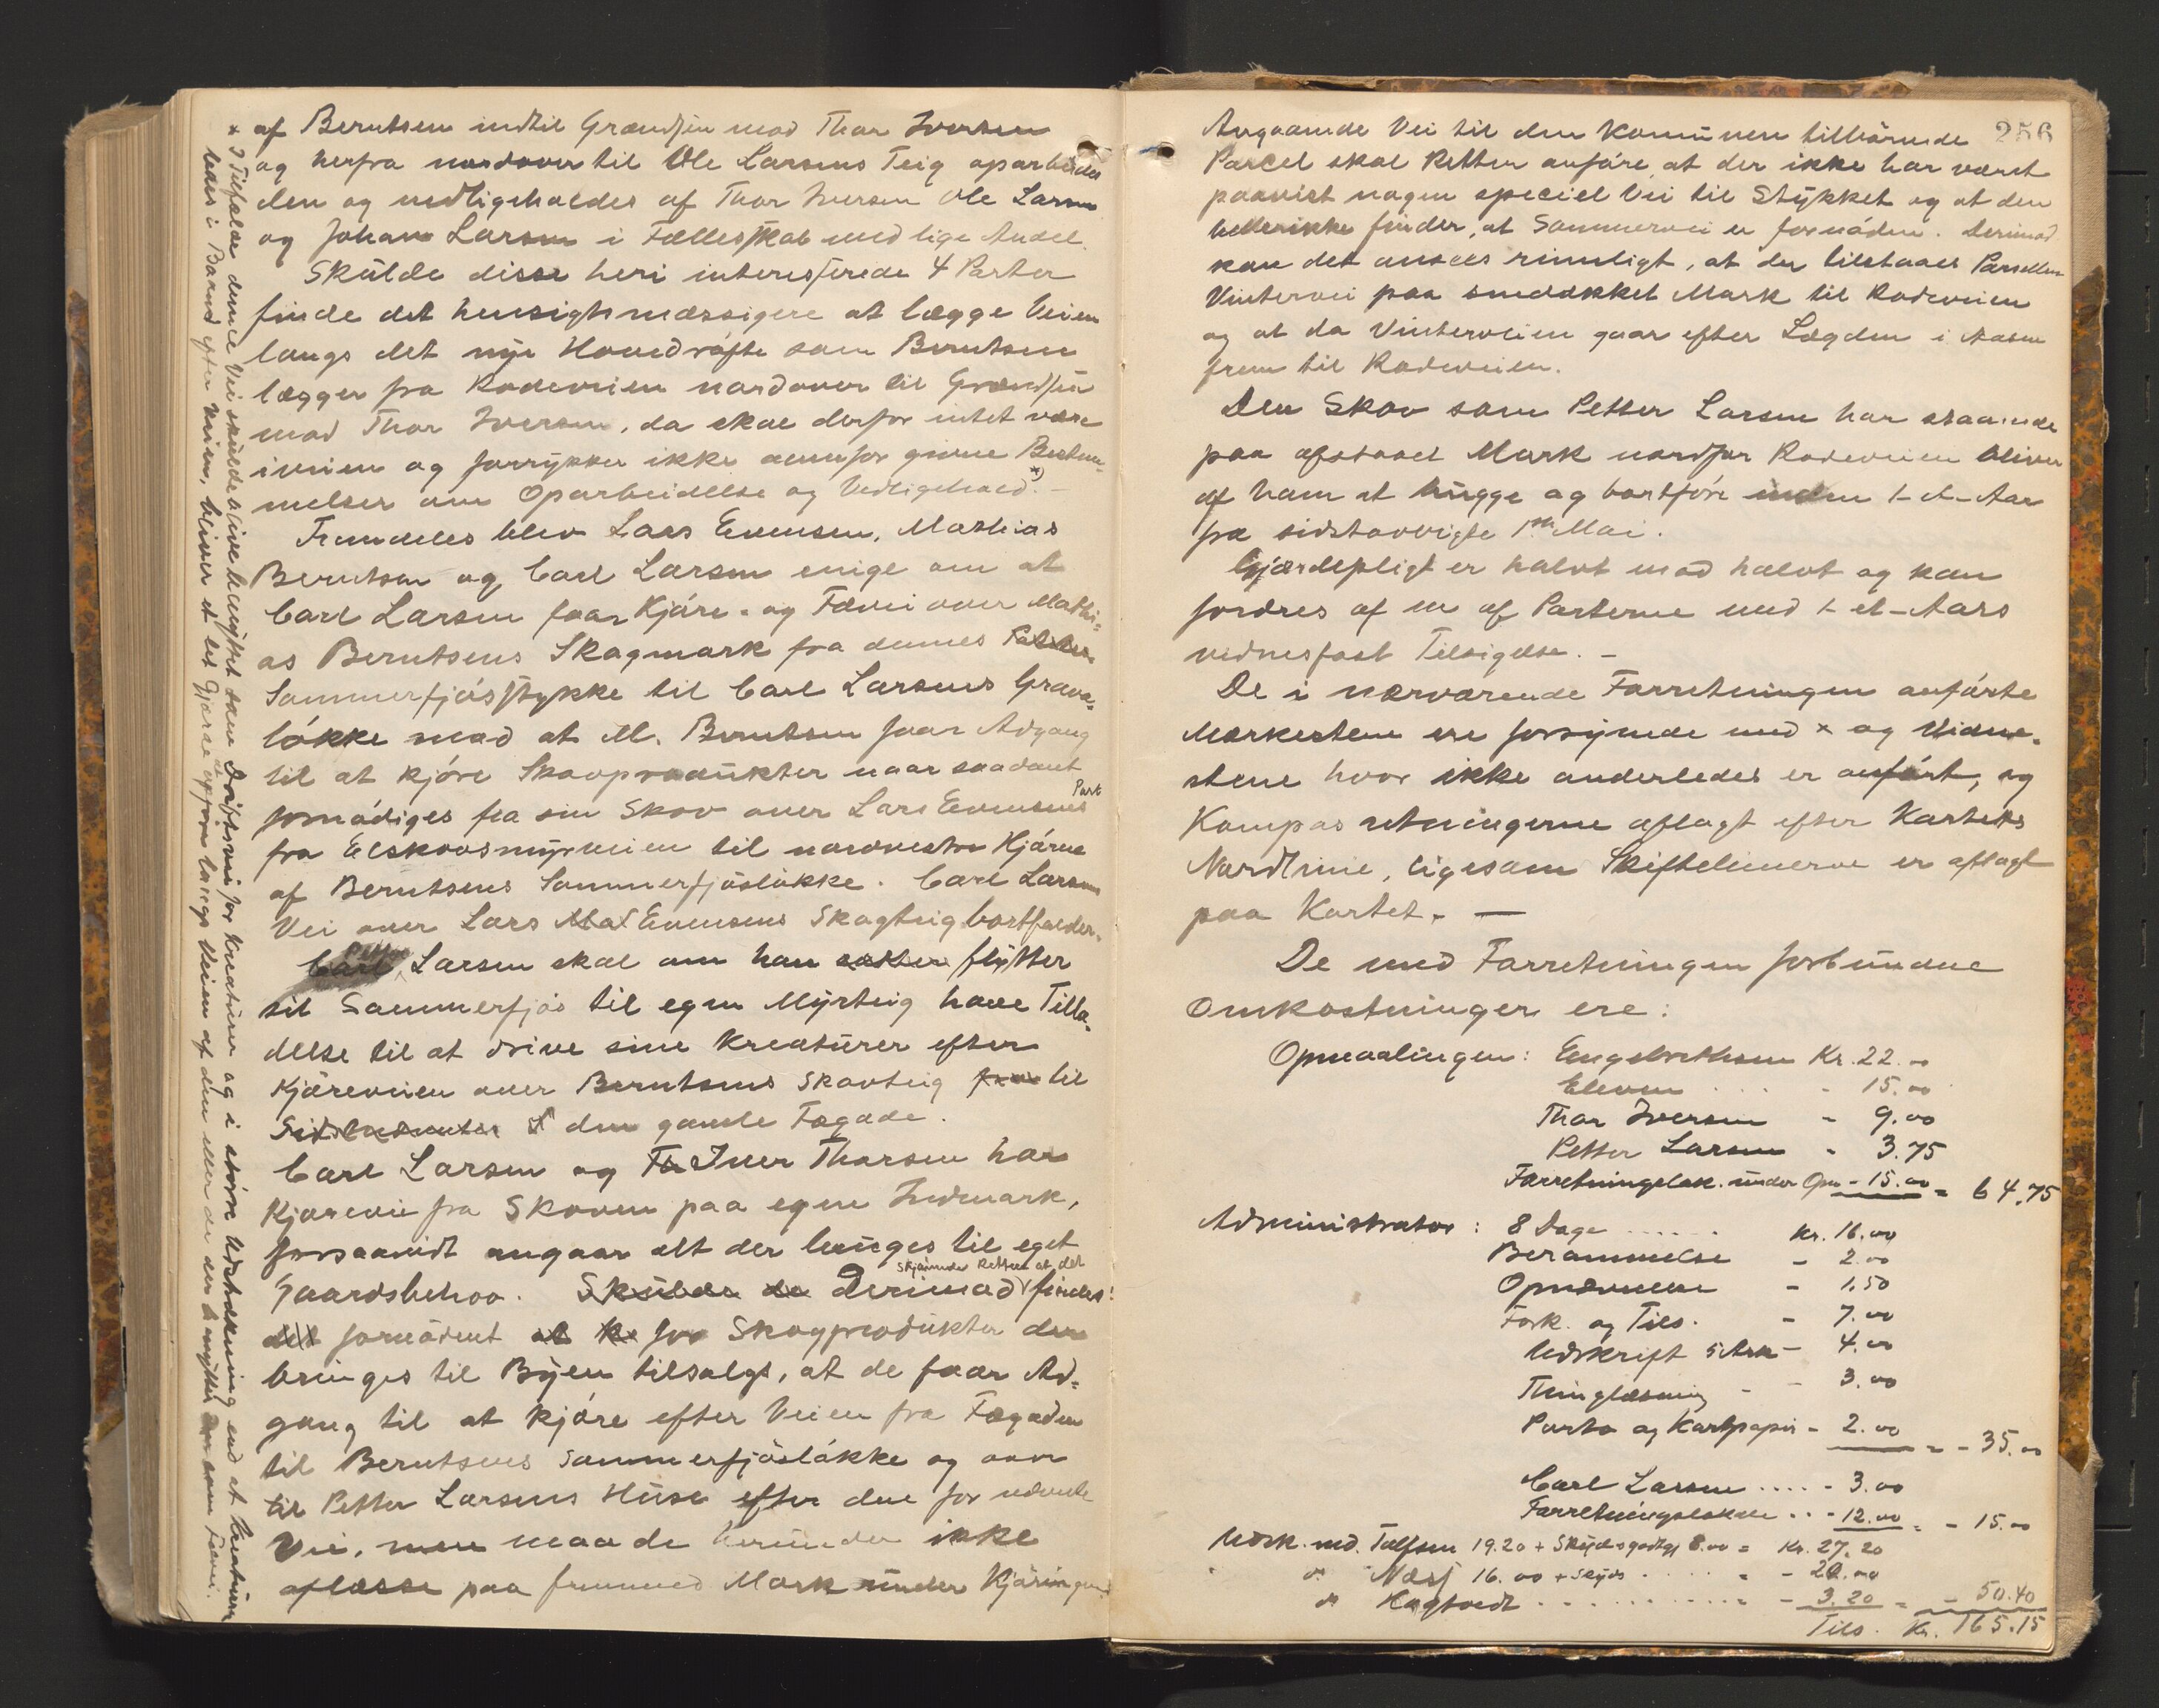 af Berntsen indtil Grændsen mod Thor Iversen
og herfra nordover til Ole Larsens Teig oparbeides
den og vedligeholdes af Thor Iversen Ole Larsen
og Johan Larsen i Fællesskab med lige Andel.
Skulde disse heri interesserede 4 Parter
finde det hensigtsmæssigere at lægge Veien
langs det nye Hovedrøfte som Berntsen
lægger fra Rodeveien nordover til Grændsen
mod Thor Iversen, da skal derfor intet være
iveien og forrykker ikke ovenfor givne Bestem-
melser om Oparbeidelse og Vedligehold. *) -
Fremdeles blev Lars Evensen, Mathias
Berntsen og Carl Larsen enige om at
Carl Larsen faar Kjøre- og Fævei over Mathi-
as Berntsens Skogmark fra dennes
Sommerfjøsstykke til Carl Larsens Grava-
løkke mod at M. Berntsen faar Adgang
til at kjøre Skovprodukter naar saadant
fornødiges fra sin Skov over Lars Evensens Part
fra Elskovsmyrveien til nordvestre Hjørne
af Berntsens Sommerfjøsløkke. Carl Larsens
Vei over Lars Mat Evensens Skogteig bortfalder.
Carl Larsen skal om han flytter
sit Sommerfjøs til egen Myrteig have Tilla-
delse til at drive sine Kreaturer efter
Kjøreveien over Berntsens Skovteig fra til
den gamle Fægade.
Carl Larsen og Th Iver Thorsen har
Kjørevei fra Skoven paa egen Indmark,
forsaavidt angaar alt der bruges til eget
Gaardsbehov. Skulde de Derimod skjønner Retten at det findes
det fornødent at kj for Skogprodukter der
bringes til Byen tilsalgs, at de faar Ad-
gang til at kjøre efter Veien fra Fægaden
til Berntsens Sommerfjøsløkke og over
til Petter Larsens Huse efter den før nævnte
Vei, men maa de herunder ikke
aflæsse paa fremmed Mark under Kjøringen.
* I Tilfælde denne Vei skulde blive benyttet som Driftsvei for Kreaturer og i større Udstrækning end at Kreaturer
ledes i Baand efter Veien, bliver et let Gjærde at opføre langs Veien af den eller de der benytter den som Fævei.
256
Angaaende Vei til den Kommunen tilhørende
Parcel skal Retten anføre, at der ikke har været
paavist nogen speciel Vei til Stykket og at den
hellerikke finder, at Sommervei er fornøden. Derimod
kan det ansees rimeligt, at der tilstaaes Parsellen
Vintervei paa snedækket Mark til Rodeveien
og at da Vinterveien gaar efter Lægden i Aasen
frem til Rodeveien.
Den Skov som Petter Larsen har staaende
paa afstaaet Mark nordfor Rodeveien bliver
af ham at hugge og bortføre inden 1- et -Aar
fra sidstavvigte 1ste Mai.
Gjærdepligt er halvt mod halvt og kan
fordres af en af Parterne med 1- et -Aars
vidnesfast Tilsigelse. -
De i nærværende Forretningen anførte
Mærkestene ere forsynede med x og Vidne-
stene hvor ikke anderledes er anført, og
Kompasretningerne aflagt efter Kartets
Nordlinie, ligesom Skiftelinierne er aflagt
paa Kartet. -
De med Forretningen forbundne
Omkostninger ere:
Opmaalingen: Engebrethsen Kr. 22.00
Eleven .... - 15.00
Thor Iversen - 9.00
Petter Larsen - 3.75
Forretningslok. under Opm - 15.00 = 64.75
Administrator: 8 Dage ...... Kr. 16.00
Berammelse - 2.00
Opnævnelse - 1.50
Fork. og Tils. - 7.00
Udskrift 5 Ark - 4.00
Thinglæsning - - 3.00
Porto og Kartpapir - 2.00 = - 35.00
Carl Larsen .... - 3.00
Forretningslokale ... - 12.00 = - 15.00
Udsk. md. Tolfsen 19.20 + Skydsgodtgj 8.00 = Kr. 27.20
do Næss 16.00 + Skyds .... = - 20.00
do Kagtvedt .......... = - 3.20 = - 50.40
Tils. Kr. 165.15